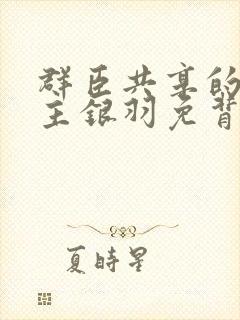 群臣共享的
主银羽免背
夏時星